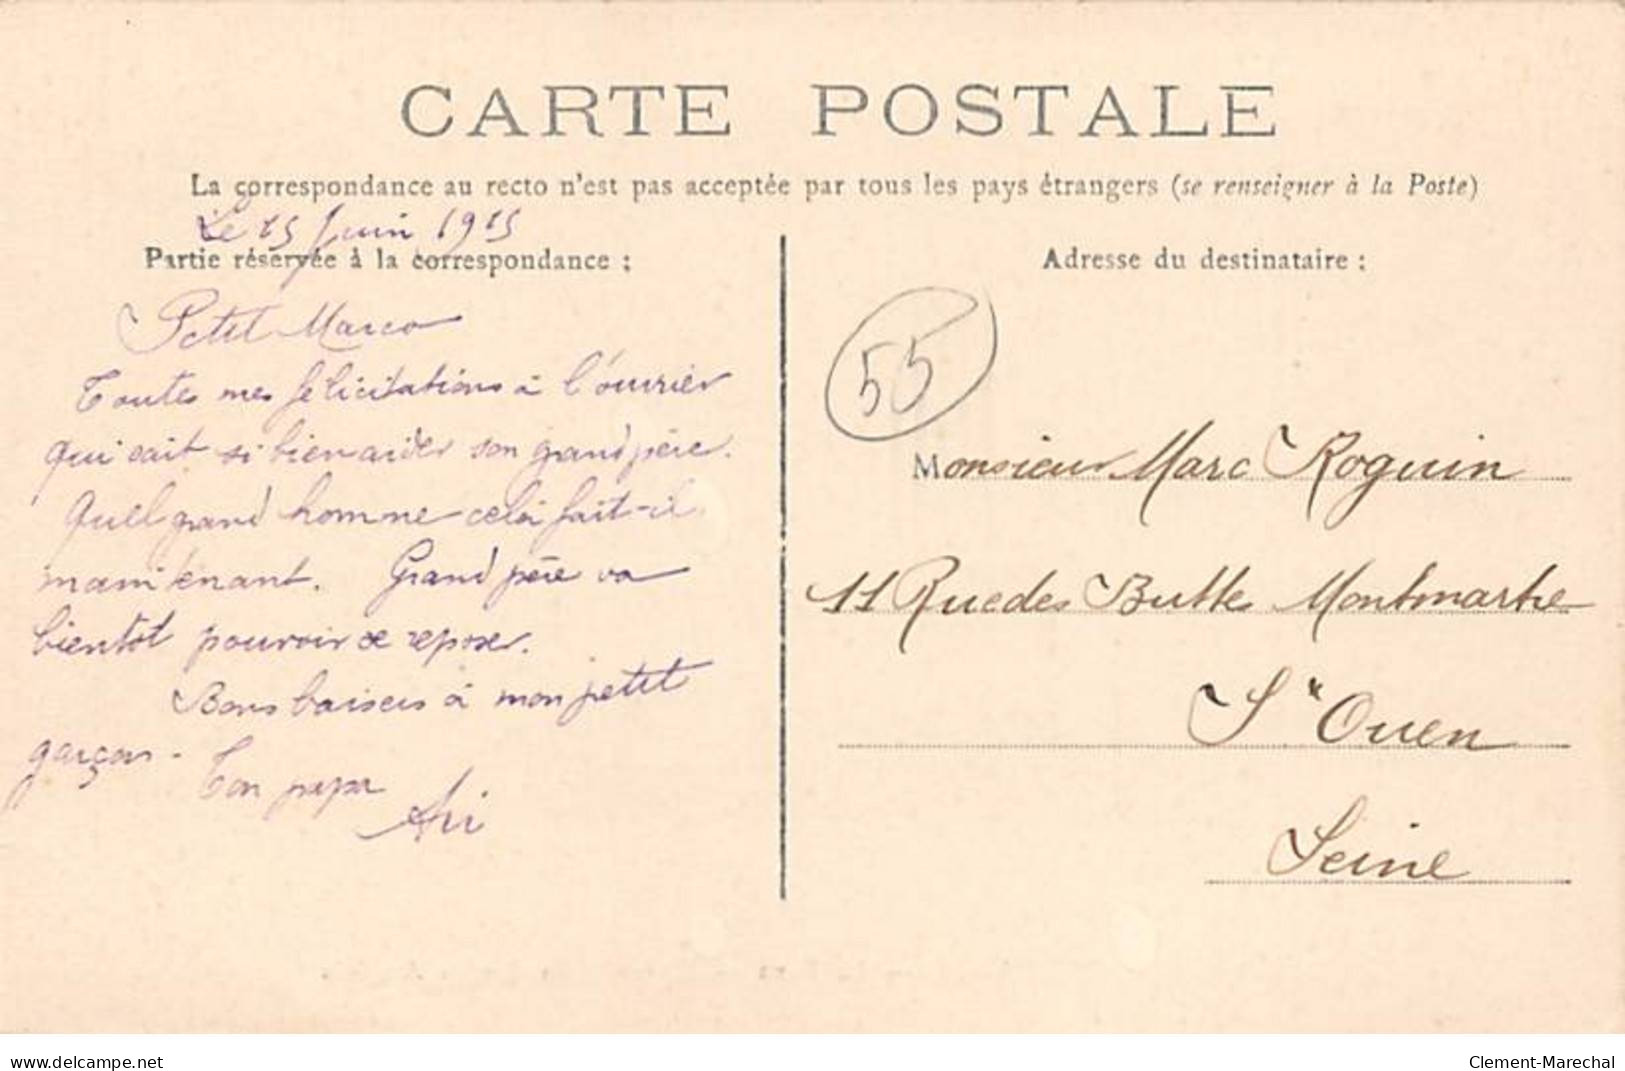 CARTE POSTALE
La correspondance au recto n'est pas acceptée par tous les pays étrangers (se renseigner à la Poste)
Le 15 Juin 1915
Partie réservée à la correspondance :
Petit Marco
Toutes mes félicitations à l'ouvrier
qui sait si bien aider son grand père.
Quel grand homme cela fait-il
maintenant. Grand père va
bientôt pouvoir se reposer.
Bons baisers à mon petit
garçon.
Ton papa
Adresse du destinataire :
55
Monsieur Marc Roguin
11 Rue des Buttes Montmartre
St Ouen
Seine
delcampe.net
Clement-Marechal